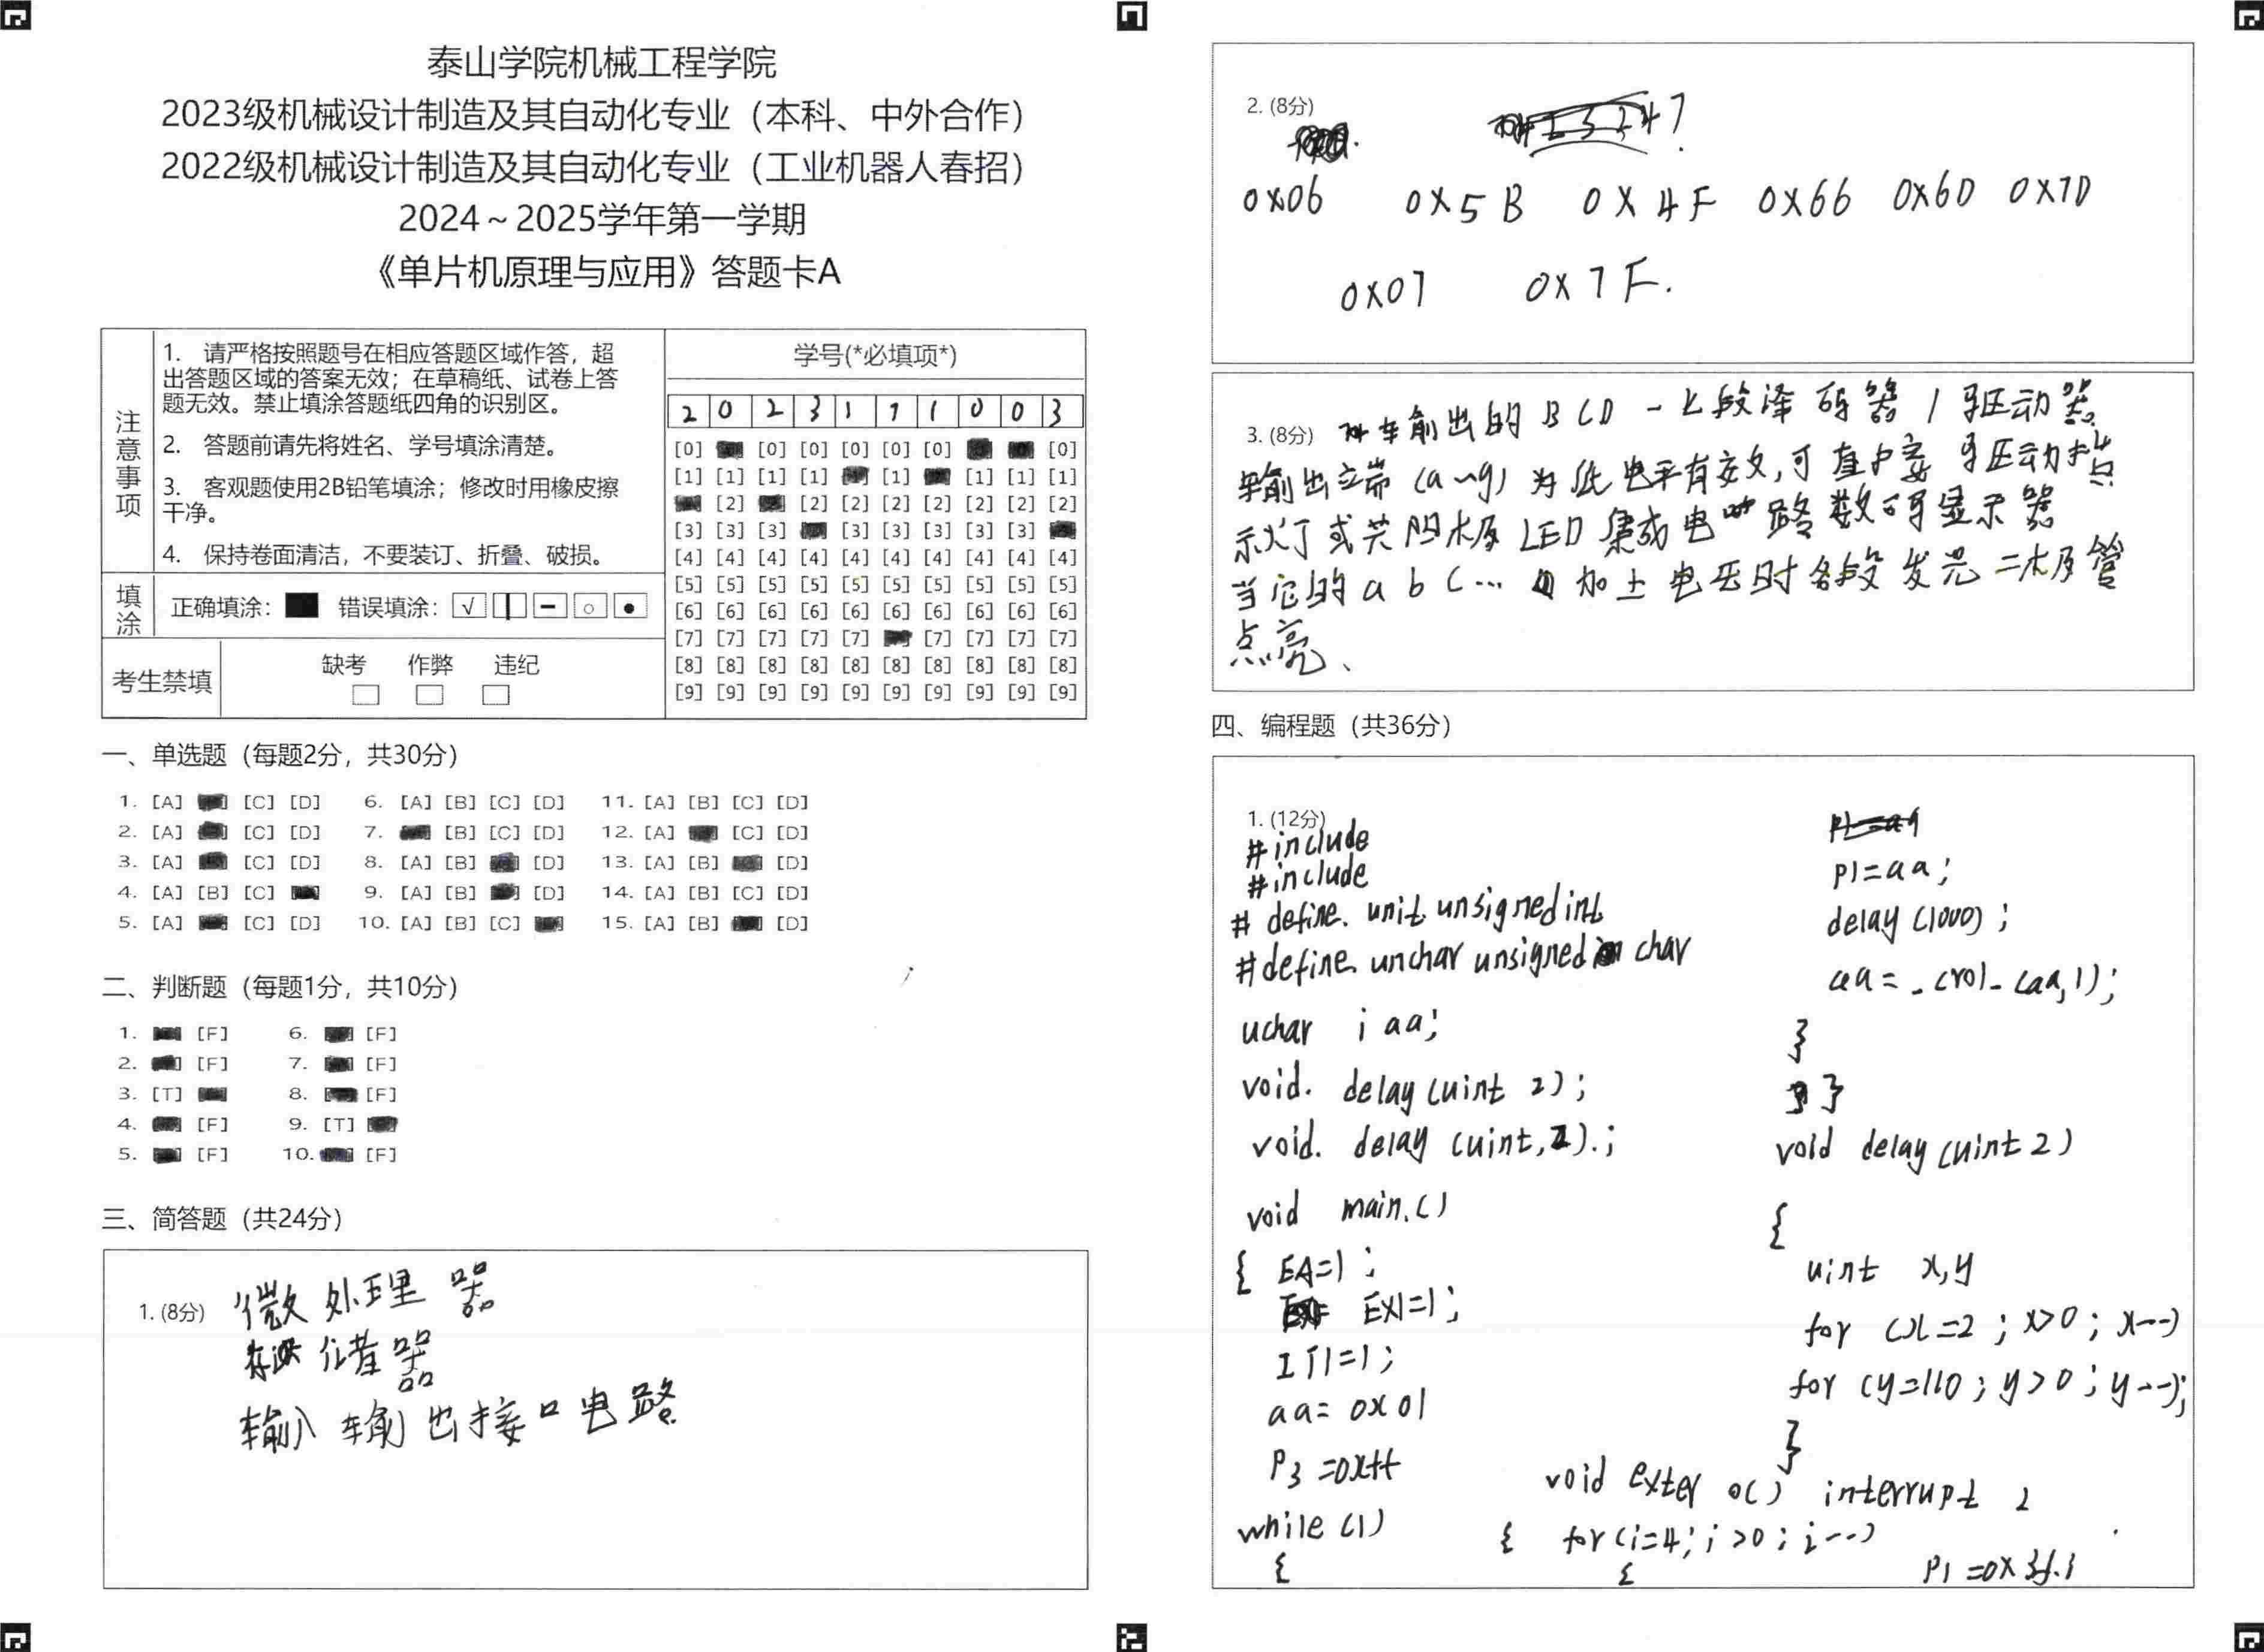 泰山学院机械工程学院
2023级机械设计制造及其自动化专业（本科、中外合作）
2022级机械设计制造及其自动化专业（工业机器人春招）
2024～2025学年第一学期
《单片机原理与应用》答题卡A
注意事项
1. 请严格按照题号在相应答题区域作答，超
出答题区域的答案无效；在草稿纸、试卷上答
题无效。禁止填涂答题纸四角的识别区。
2. 答题前请先将姓名、学号填涂清楚。
3. 客观题使用2B铅笔填涂；修改时用橡皮擦
干净。
4. 保持卷面清洁，不要装订、折叠、破损。
填涂
正确填涂： 错误填涂：
考生禁填
缺考 作弊 违纪
学号(*必填项*)
2 0 2 3 1 7 1 0 0 3
[0] [0] [0] [0] [0] [0] [0]
[1] [1] [1] [1] [1] [1] [1] [1]
[2] [2] [2] [2] [2] [2] [2] [2]
[3] [3] [3] [3] [3] [3] [3] [3]
[4] [4] [4] [4] [4] [4] [4] [4] [4] [4]
[5] [5] [5] [5] [5] [5] [5] [5] [5] [5]
[6] [6] [6] [6] [6] [6] [6] [6] [6] [6]
[7] [7] [7] [7] [7] [7] [7] [7] [7]
[8] [8] [8] [8] [8] [8] [8] [8] [8] [8]
[9] [9] [9] [9] [9] [9] [9] [9] [9] [9]
一、单选题（每题2分，共30分）
1. [A] [C] [D] 6. [A] [B] [C] [D] 11. [A] [B] [C] [D]
2. [A] [C] [D] 7. [B] [C] [D] 12. [A] [C] [D]
3. [A] [C] [D] 8. [A] [B] [D] 13. [A] [B] [D]
4. [A] [B] [C] 9. [A] [B] [D] 14. [A] [B] [C] [D]
5. [A] [C] [D] 10. [A] [B] [C] 15. [A] [B] [D]
二、判断题（每题1分，共10分）
1. [F] 6. [F]
2. [F] 7. [F]
3. [T] 8. [F]
4. [F] 9. [T]
5. [F] 10. [F]
三、简答题（共24分）
1. (8分) 微处理器
储器
输入输出接口电路
2. (8分)
0x06 0x5B 0x4F 0x66 0x6D 0x7D
0x07 0x7F.
3. (8分) 输出的BCD-七段译码器/驱动器
输出立端(a~g)为低电平有效,可直接驱动指
示灯或共阴极LED集成电路数码显示器
当它的a b c… 加上电压时各段发光二极管
点亮、
四、编程题（共36分）
1. (12分)
#include
#include
# define. unit unsigned int
#define unchar unsigned char
uchar i aa;
void. delay (uint 2);
void. delay (uint,2).;
void main.()
{ EA=1;
EX1=1;
IT1=1;
aa= 0x01
P3 =0xff
while (1)
{
P1=aa;
delay (1000);
aa= _crol_ (aa,1);
}
}
void delay (uint 2)
{
uint x,y
for (x=2; x>0; x--)
for (y=110; y>0; y--);
}
void exter 0() interrupt 2
{ for(i=4; i>0; i--)
{ P1 =0x